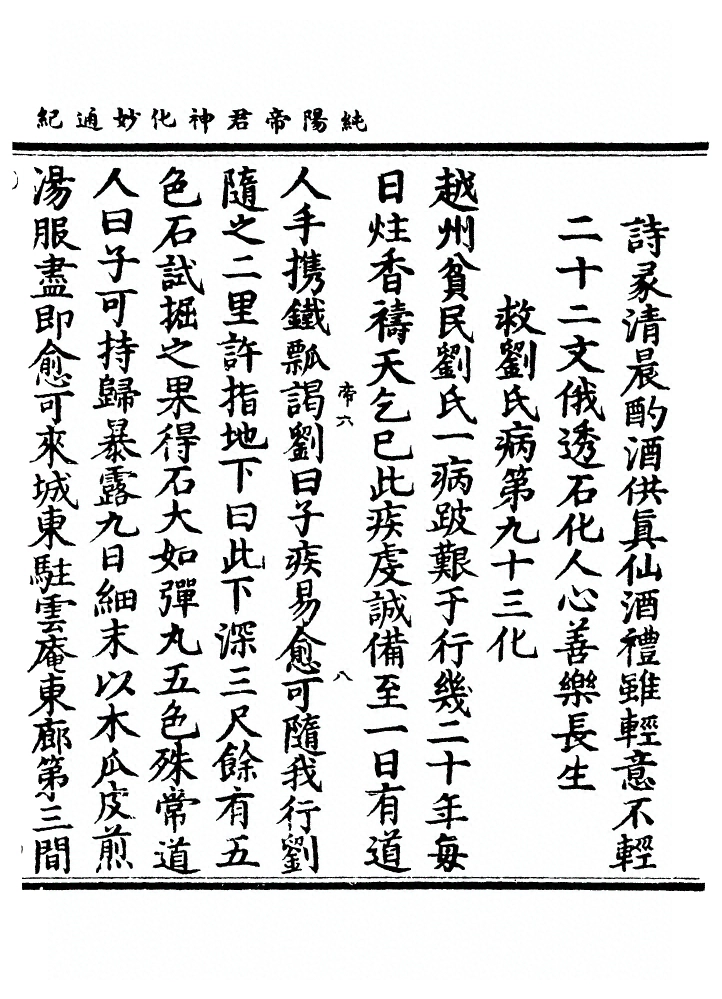 純陽帝君神化妙通紀
詩彖清晨酌酒供眞仙酒禮雖輕意不輕
二十二文俄透石化人心善樂長生
救劉氏病第九十三化
越州貧民劉氏一病跛艱于行幾二十年每
日炷香禱天乞已此疾虔誠備至一日有道
帝六
八
人手攜鐵瓢謁劉曰子疾易愈可隨我行劉
隨之二里許指地下曰此下深三尺餘有五
色石試掘之果得石大如彈丸五色殊常道
人曰子可持歸暴露九日細末以木瓜皮煎
湯服盡即愈可來城東駐雲庵東廊第三間